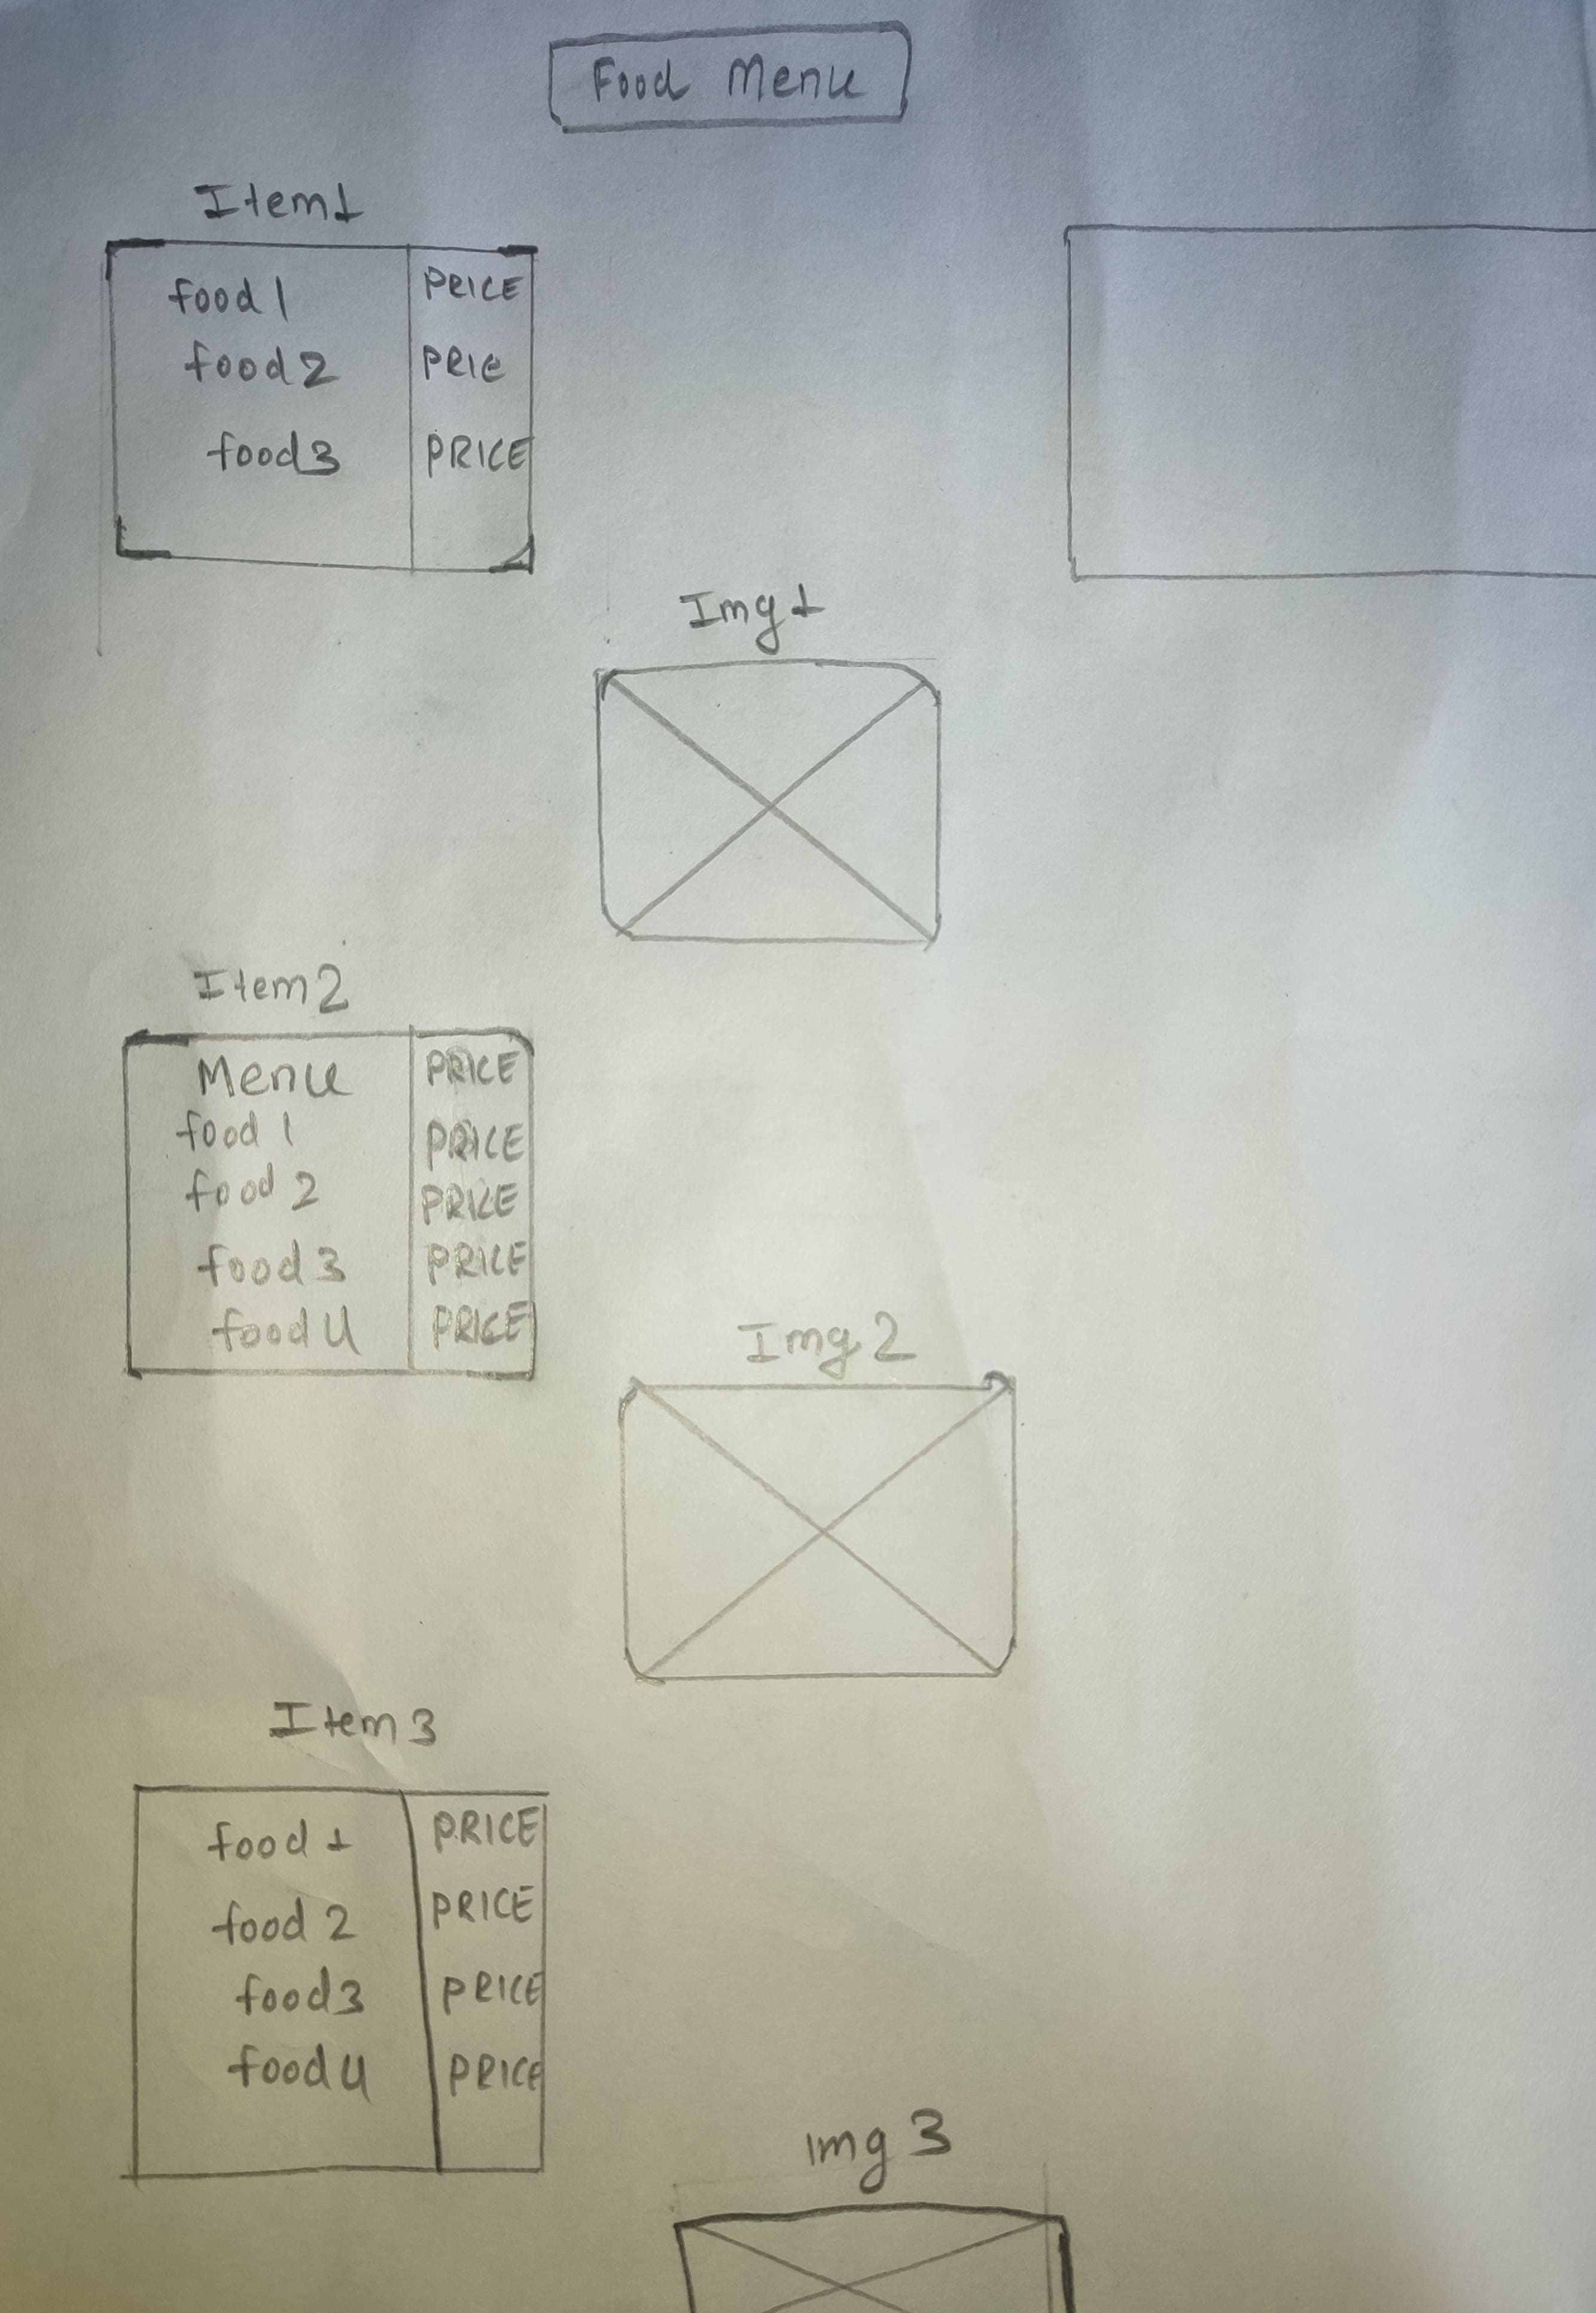 Food Menu
Item1
food 1 PRICE
food 2 PRIE
food3 PRICE
Img 1
Item2
Menu PRICE
food 1 PRICE
food 2 PRICE
food 3 PRICE
food 4 PRICE
Img 2
Item 3
food 1 PRICE
food 2 PRICE
food3 PRICE
food 4 PRICE
img 3